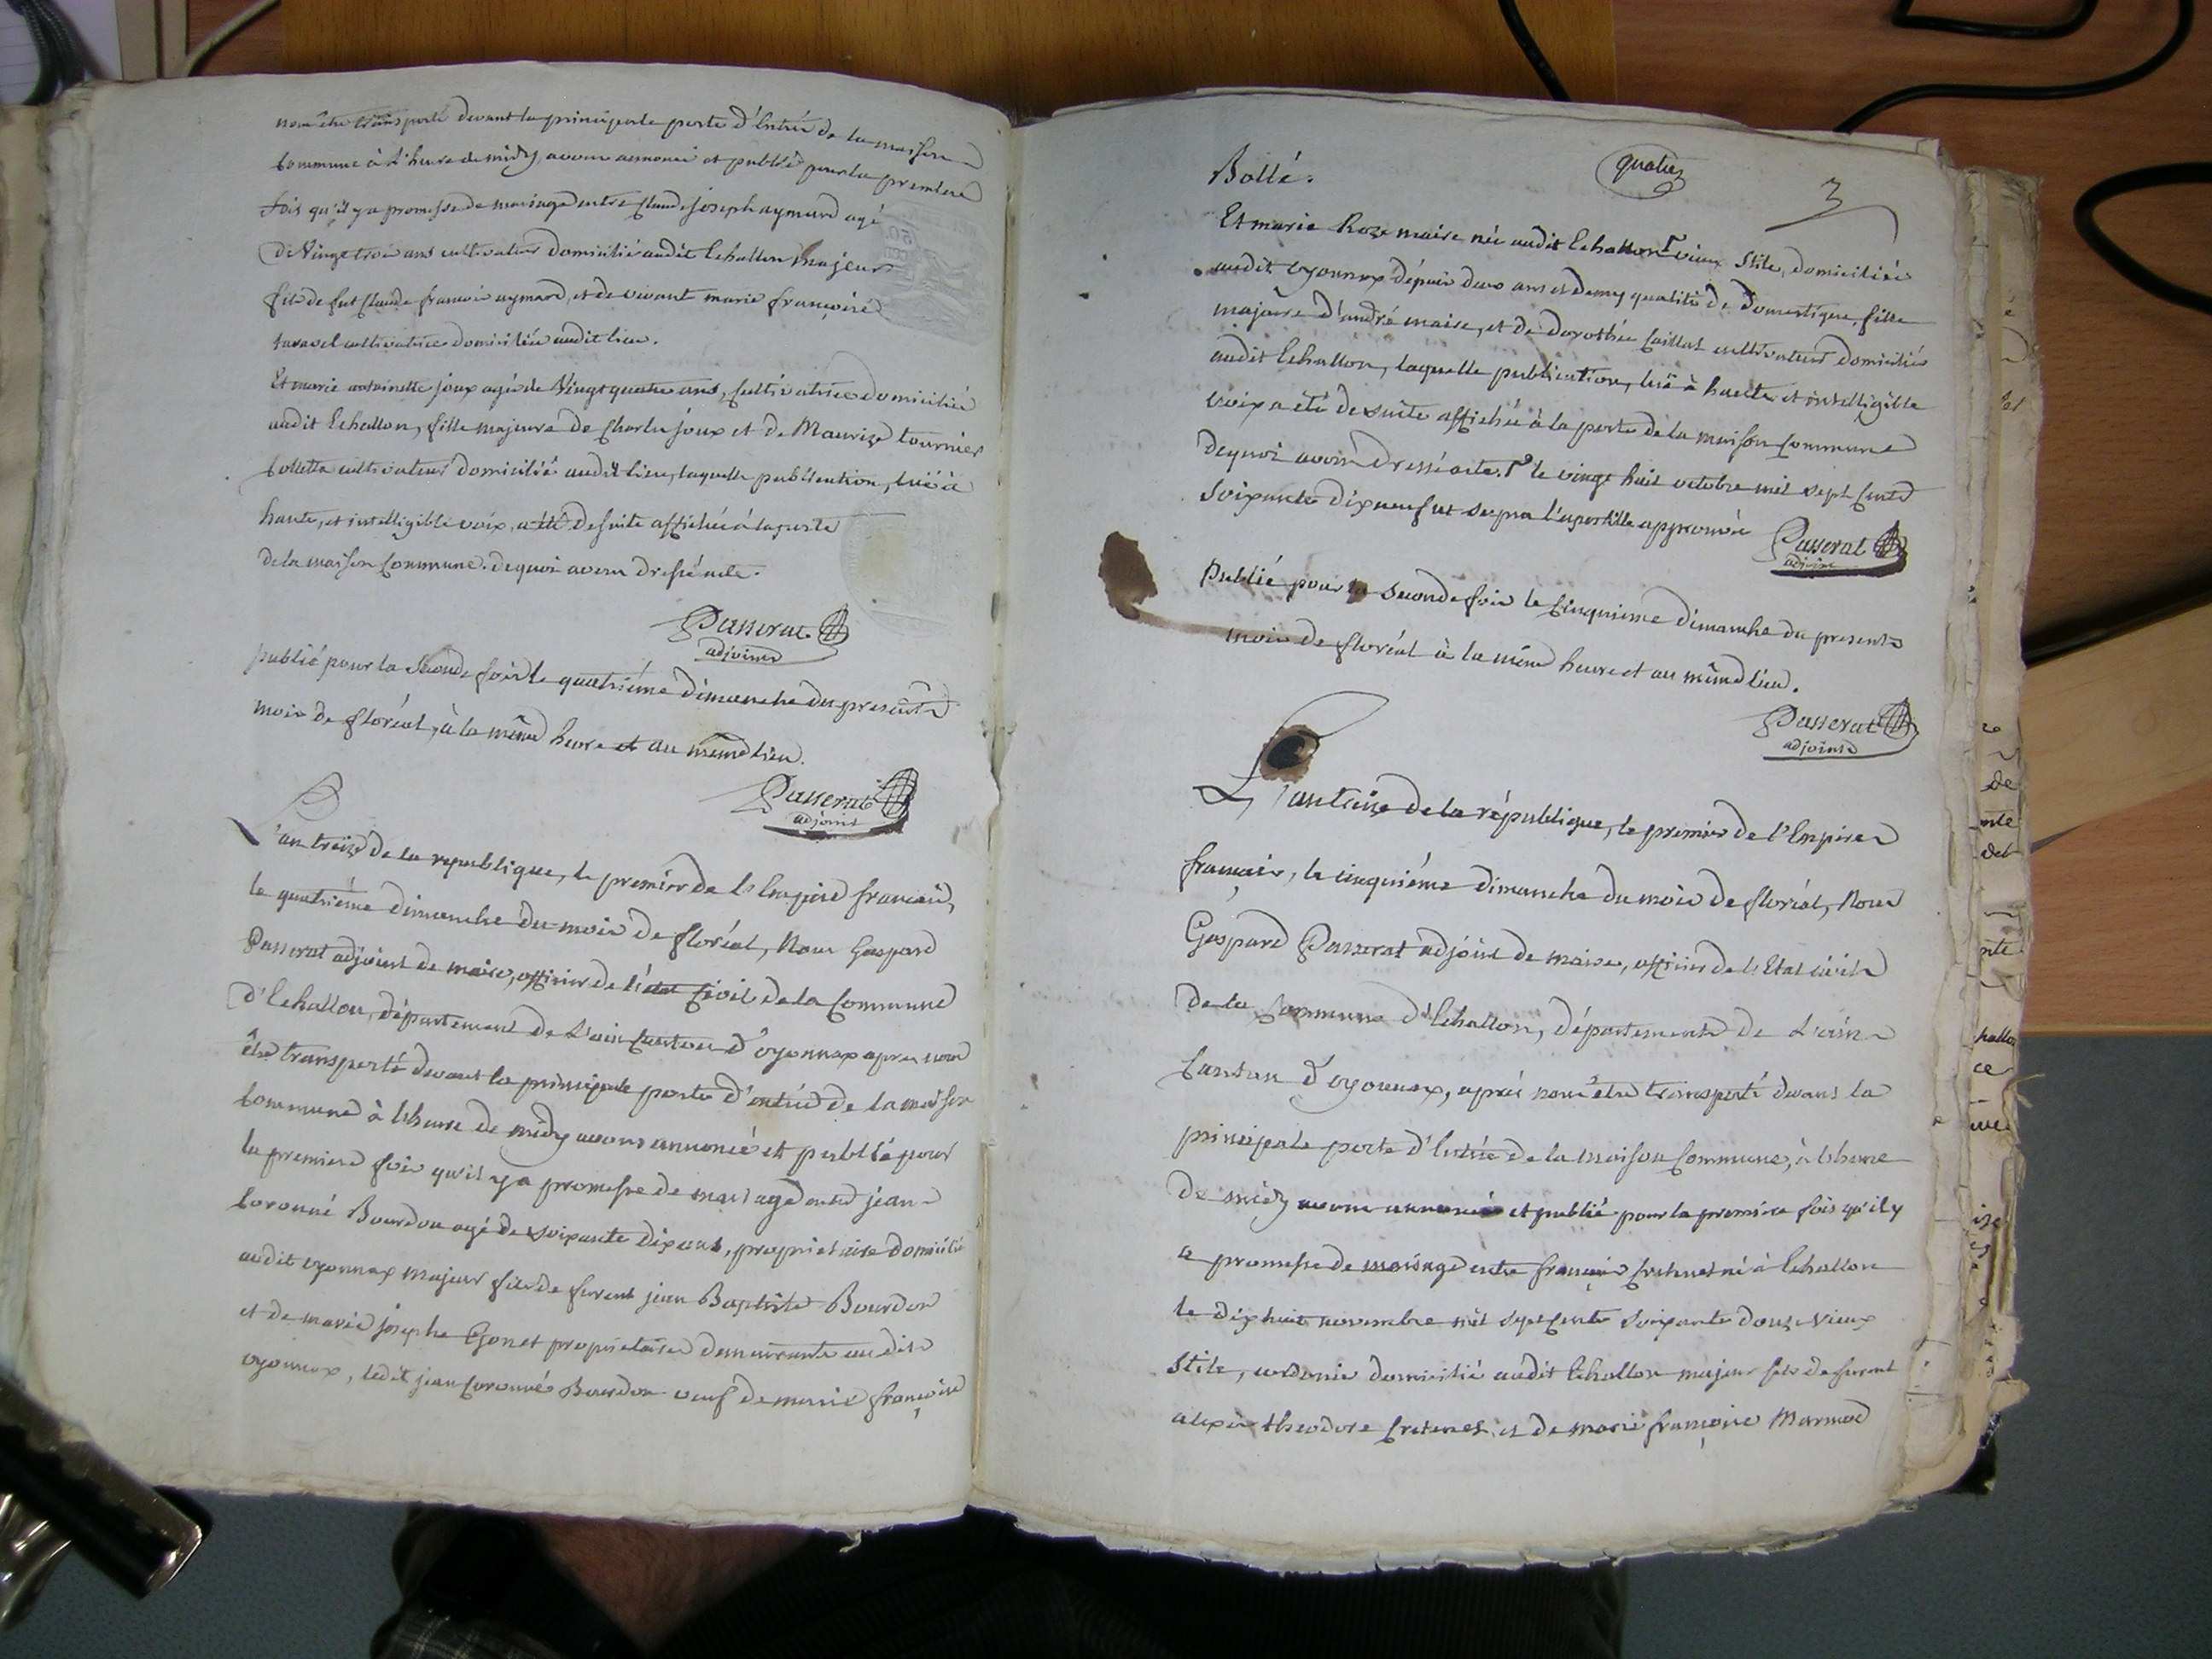 nous être transporté devant la principale porte d'Entrée de la maison
Commune à L'heure de midy, avons annoncé et publié pour la premiere
fois qu'il y a promesse de mariage entre Claude joseph aymard agé
de Vingt trois ans cultivateur domicilié audit Echallon majeur
fils de fut Claude francois aymard, et de vivant marie françoise
tavavel cultivatrice domiciliée audit lieu.
Et marie antoinette joux agée de Vingt quatre ans, Cultivatrice domiciliée
audit Echallon, fille majeure de Charles joux et de Maurize tournier
Colletta cultivateurs domiciliés audit lieu, laquelle publication, luë à
haute, et intelligible voix, a été de suite affichée à la porte
de la maison Commune. de quoi avons dressé acte.
Passerat
adjoint
publié pour la seconde fois le quatrième dimanche du present
mois de floréal, à la même heure et au même lieu.
Passerat
adjoint
L'an treize de la republique, le premier de l'Empire francais,
le quatrième dimanche du mois de floréal, Nous Gaspard
Passerat adjoint de maire, officier de l'état Civil de la Commune
d'Echallon, département de L'ain Canton d'oyonnax apres nous
être transporté devant la principale porte d'entrée de la maison
Commune à l'heure de midy avons annoncé et publié pour
la premiere fois qu'il y a promesse de mariage entre jean
Coronné Bourdon agé de soixante dix ans, proprietaire domicilié
audit oyonnax majeur fils de furent jean Baptiste Bourdon
et de marie josephe Gonet proprietaires demeurants audit
oyonnax, ledit jean Coronné Bourdon veuf de marie françoise
quatre
3
Bollé.
Et marie Roze maire née audit Echallon vieux Stile, domiciliée
audit oyonnax depuis deux ans et demy qualité de domestique, fille
majeure d'andré maire, et de dorothée Caillat cultivateurs domiciliés
audit Echallon, laquelle publication, luë à haute et intelligible
voix a été de suite affichée à la porte de la maison Commune
de quoi avons dressé acte. le vingt huit octobre mil sept Cents
Soixante dix neuf ut supra l'apostille approuvée
Passerat
adjoint
Publié pour la seconde fois le Cinquieme dimanche du present
mois de floréal à la même heure et au même lieu.
Passerat
adjoint
L'an treize de la république, le premier de l'Empire
francais, le cinquième dimanche du mois de floréal, Nous
Gaspard Passerat adjoint de maire, officier de l'Etat civil
de la Commune d'Echallon, département de L'ain
Canton d'oyonnax, après nous être transporté devant la
principale porte d'Entrée de la maison Commune, à l'heure
de midy avons annoncé et publié pour la premiere fois qu'il y
a promesse de mariage entre françois Cretenet né à Echallon
le dix huit novembre mil sept Cents soixante douze vieux
Stile, cordonnier domicilié audit Echallon majeur fils de furent
alexis théodore Cretenet, et de marie françoise Marmod